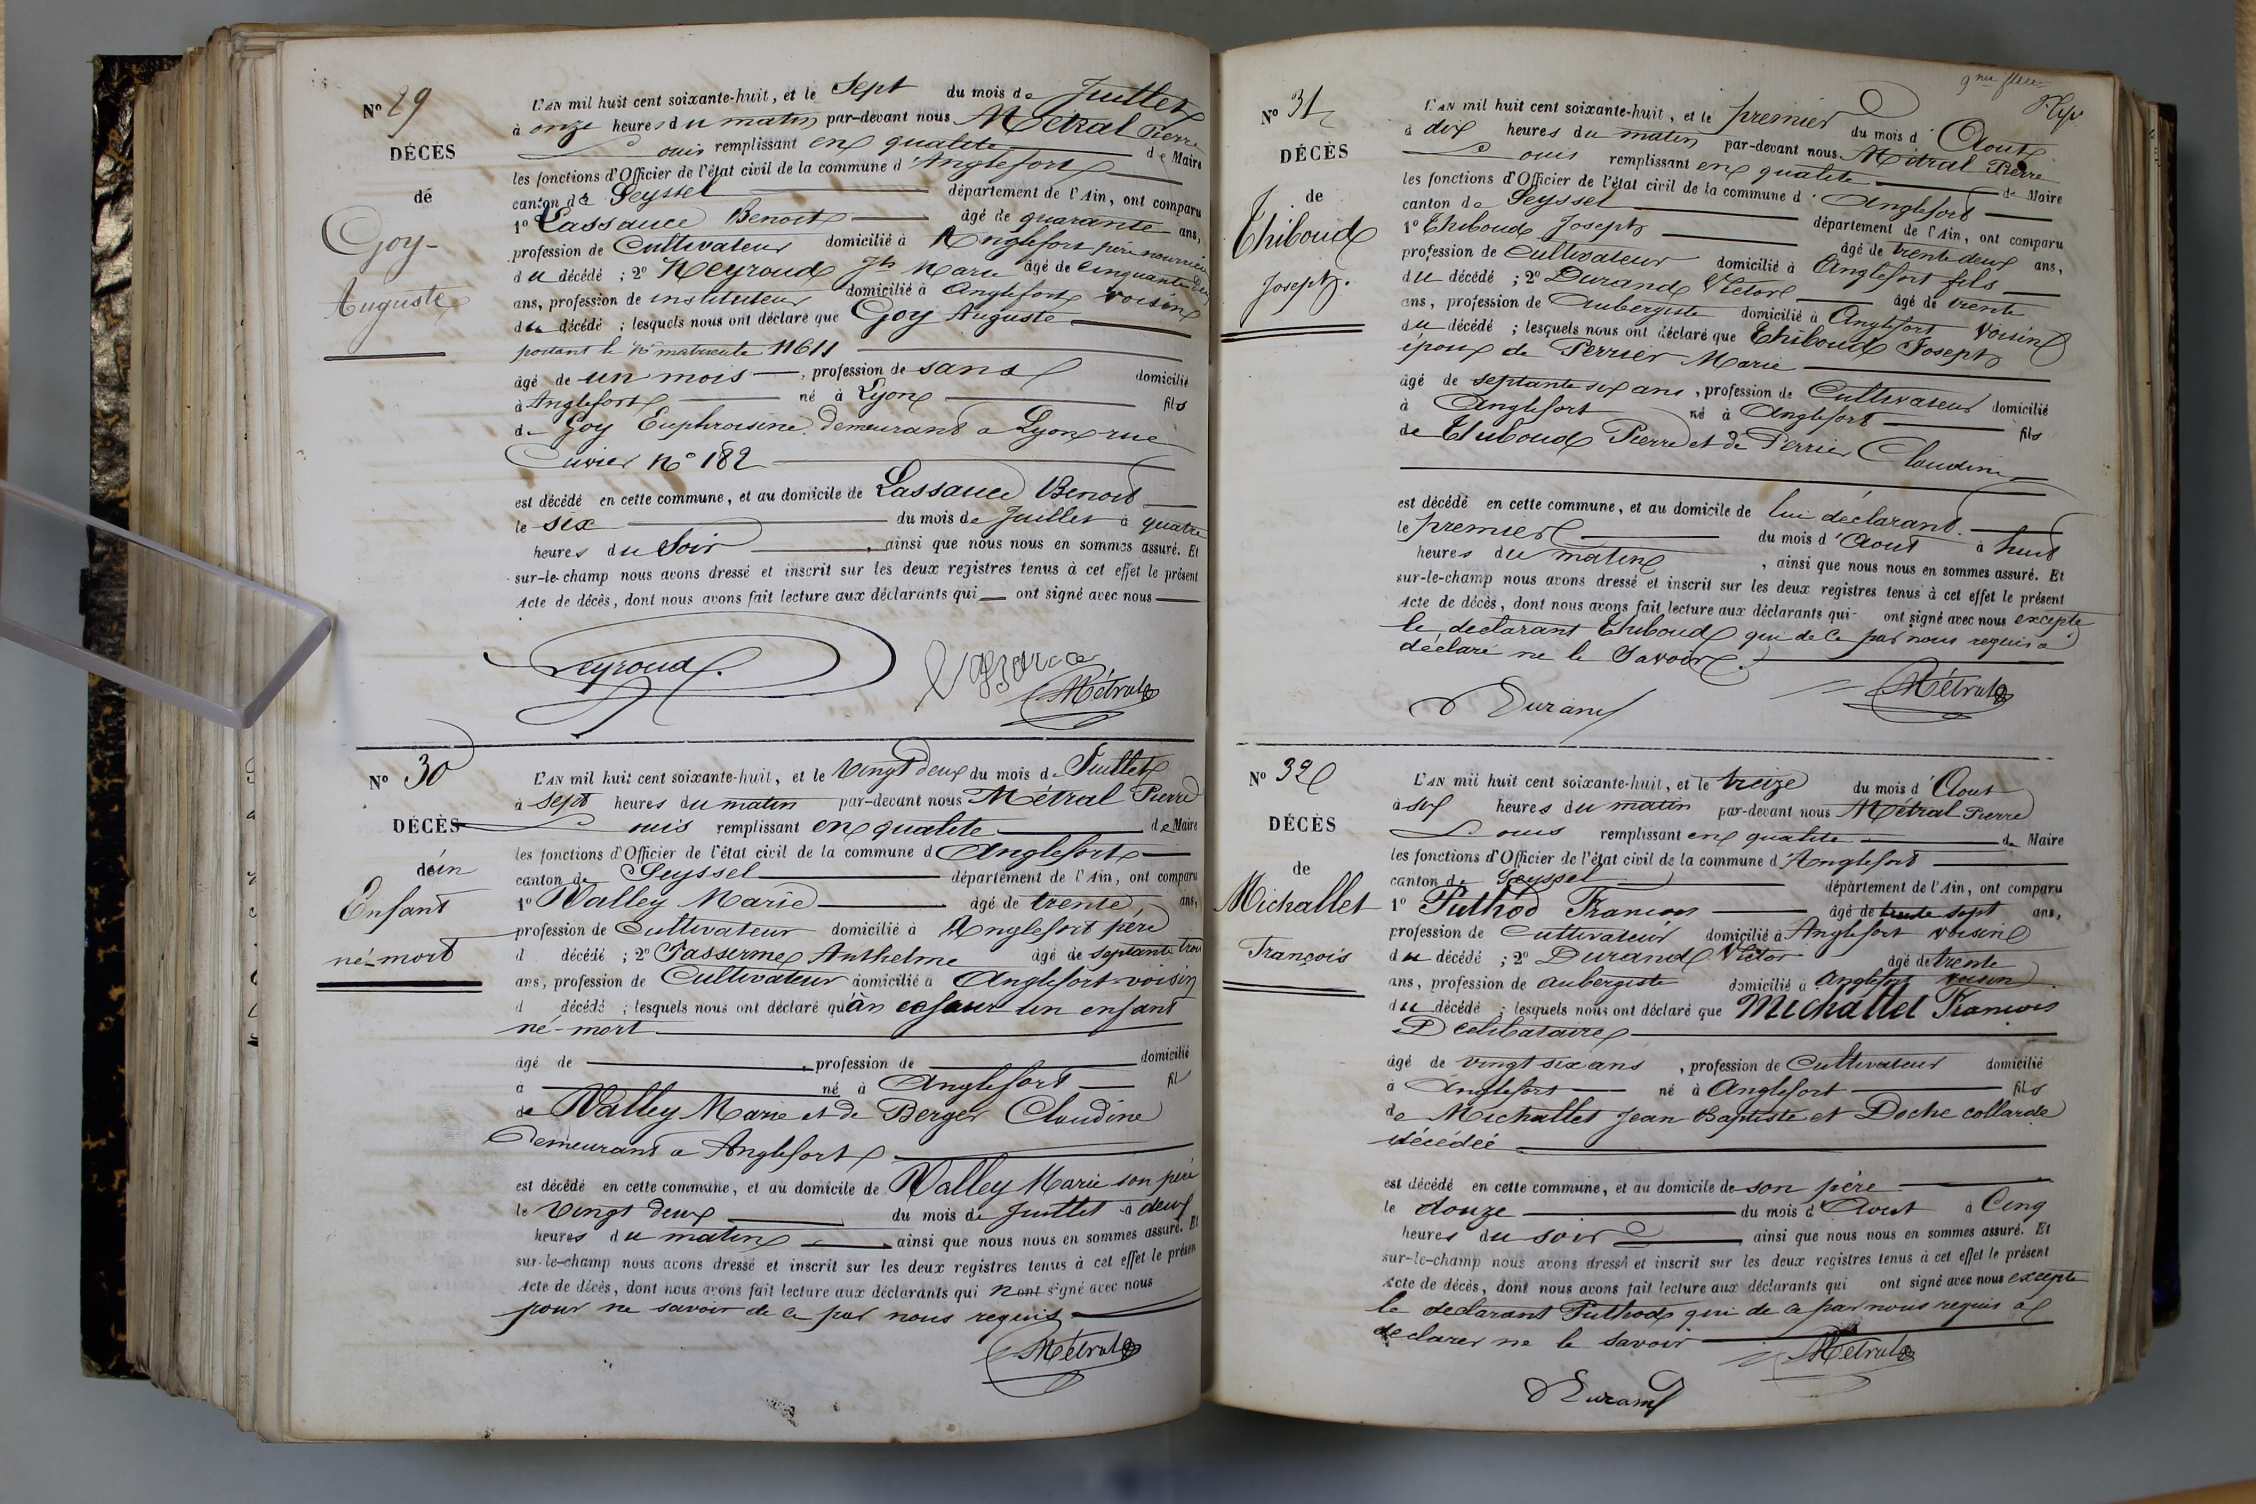 Nº 29
DÉCÈS
de
Goy
Auguste
L'AN mil huit cent soixante-huit, et le Sept du mois de Juillet
à onze heures du matin par-devant nous Métral Pierre
Louis remplissant en qualité de Maire
les fonctions d'Officier de l'état civil de la commune d'Anglefort
canton de Seyssel département de l'Ain, ont comparu
1º Lassauce Benoit âgé de quarante ans,
profession de Cultivateur domicilié à Anglefort père nourricier
du décédé ; 2º Neyroud Jh Marie âgé de cinquante deux
ans, profession de instituteur domicilié à Anglefort voisin
du décédé ; lesquels nous ont déclaré que Goy Auguste
portant le nº matricule 11611
âgé de un mois, profession de sans domicilié
à Anglefort né à Lyon fils
de Goy Euphroisine demeurant à Lyon rue
Cuvier Nº 182
est décédé en cette commune, et au domicile de Lassauce Benoit
le six du mois de Juillet à quatre
heures du Soir, ainsi que nous nous en sommes assuré. Et
sur-le-champ nous avons dressé et inscrit sur les deux registres tenus à cet effet le présent
Acte de décès, dont nous avons fait lecture aux déclarants qui ont signé avec nous
Neyroud. Lassauce
Métral
Nº 30
DÉCÈS
d'un
Enfant
né-mort
L'AN mil huit cent soixante-huit, et le Vingt deux du mois de Juillet
à sept heures du matin par-devant nous Métral Pierre
Louis remplissant en qualité de Maire
les fonctions d'Officier de l'état civil de la commune d Anglefort
canton de Seyssel département de l'Ain, ont comparu
1º Valley Marie âgé de trente ans,
profession de Cultivateur domicilié à Anglefort père
d décédé ; 2º Passerme Anthelme âgé de septante trois
ans, profession de Cultivateur domicilié à Anglefort voisin
d décédé ; lesquels nous ont déclaré qu'un enfant
né-mort
âgé de , profession de domicilié
à né à Anglefort fil
de Valley Marie et de Berger Claudine
Demeurant à Anglefort
est décédé en cette commune, et au domicile de Valley Marie son père
le Vingt deux du mois de Juillet à deux
heures du matin, ainsi que nous nous en sommes assuré. Et
sur-le-champ nous avons dressé et inscrit sur les deux registres tenus à cet effet le présent
Acte de décès, dont nous avons fait lecture aux déclarants qui n'ont signé avec nous
pour ne savoir de ce par nous requis
Métral
Nº 31
DÉCÈS
de
Thiboud
Joseph.
L'AN mil huit cent soixante-huit, et le premier du mois d'Aout
à dix heures du matin par-devant nous Métral Pierre
Louis remplissant en qualité de Maire
les fonctions d'Officier de l'état civil de la commune d'Anglefort
canton de Seyssel département de l'Ain, ont comparu
1º Thiboud Joseph âgé de trente deux ans,
profession de Cultivateur domicilié à Anglefort fils
du décédé ; 2º Durand Victor âgé de trente
ans, profession de Aubergiste domicilié à Anglefort voisin
du décédé ; lesquels nous ont déclaré que Thiboud Joseph
époux de Perrier Marie
âgé de septante six ans, profession de Cultivateur domicilié
à Anglefort né à Anglefort fils
de Thiboud Pierre et de Perrier Claudine
est décédé en cette commune, et au domicile de lui déclarant.
le premier du mois d'Aout à huit
heures du matin, ainsi que nous nous en sommes assuré. Et
sur-le-champ nous avons dressé et inscrit sur les deux registres tenus à cet effet le présent
Acte de décès, dont nous avons fait lecture aux déclarants qui ont signé avec nous excepté
le déclarant Thiboud qui de ce par nous requis a
déclaré ne le Savoir.
Durand Métral
Nº 32
DÉCÈS
de
Michallet
François
L'AN mil huit cent soixante-huit, et le treize du mois d'Aout
à six heures du matin par-devant nous Métral Pierre
Louis remplissant en qualité de Maire
les fonctions d'Officier de l'état civil de la commune d'Anglefort
canton de Seyssel département de l'Ain, ont comparu
1º Puthod François âgé de trente sept ans,
profession de Cultivateur domicilié à Anglefort voisin
du décédé ; 2º Durand Victor âgé de trente
ans, profession de aubergiste domicilié à Anglefort voisin
du décédé ; lesquels nous ont déclaré que Michallet François
Célibataire
âgé de vingt six ans, profession de Cultivateur domicilié
à Anglefort né à Anglefort fils
de Michallet Jean Baptiste et Doche collarde
décédée
est décédé en cette commune, et au domicile de son père
le douze du mois d'Aout à Cinq
heures du soir ainsi que nous nous en sommes assuré. Et
sur-le-champ nous avons dressé et inscrit sur les deux registres tenus à cet effet le présent
Acte de décès, dont nous avons fait lecture aux déclarants qui ont signé avec nous excepté
le déclarant Puthod qui de ce par nous requis a
declarer ne le savoir
Métral
Durand